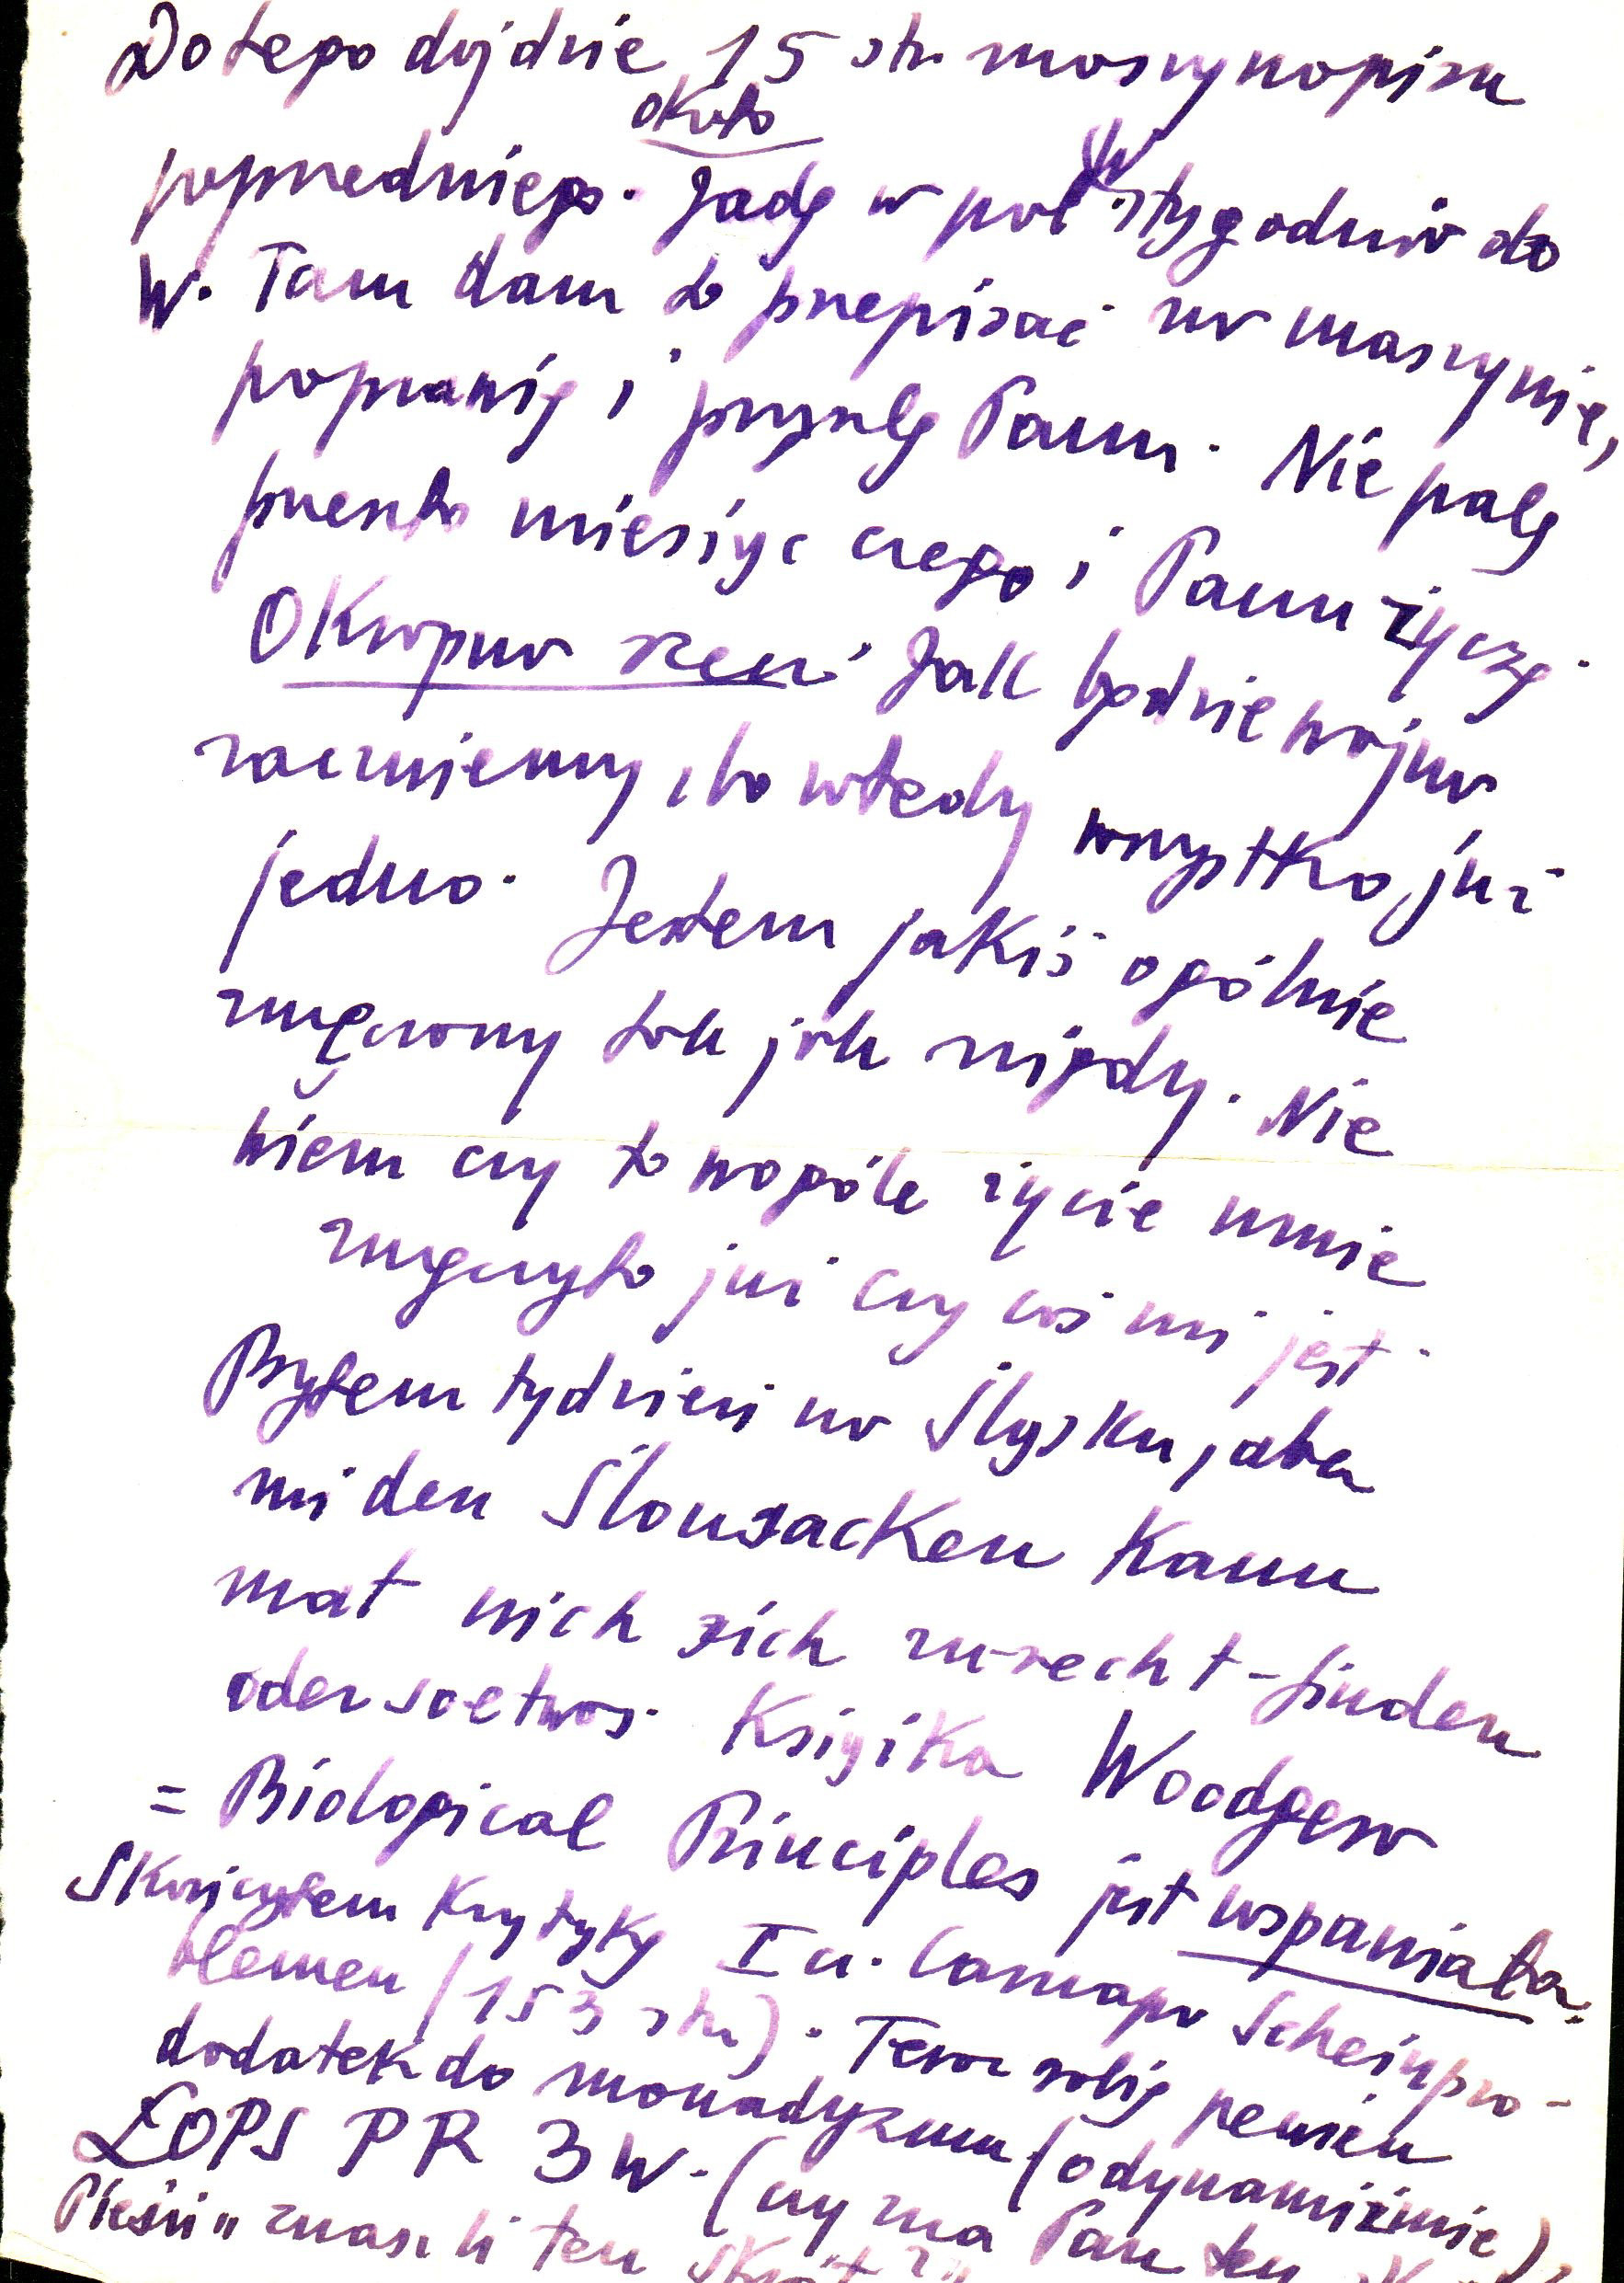 Do tego dojdzie 15 str. maszynopisu
około
poprzedniego. Jadę w poł. stygodnia do
W. Tam dam to przepisać na maszynie,
poprawię i przyszlę Panu. Nie palę
przeszło miesiąc czego i Panu życzę.
Okropna rzecz. Jak będzie wojna
zaczniemy, bo wtedy wszystko już
jedno. Jestem jakiś ogólnie
zmęczony tak jak nigdy. Nie
wiem czy to wogóle życie mnie
zmęczyło już czy coś mi jest.
Byłem tydzień na Śląsku, aber
mi den Slonzacken kann
mat nich sich zu-recht-finden
oder so etwas. Książka Woodgera
= Biological Principles jest wspaniała.
Skończyłem Krytykę I cz. Carnapa Scheinpro-
blemen (153 str.). Teraz robię pewien
dodatek do monadyzmu (o dynamiźmie)
ŁOPS PR 3 W. (czy zna Pan ten
Pieśń" znasz li ten skrót?"